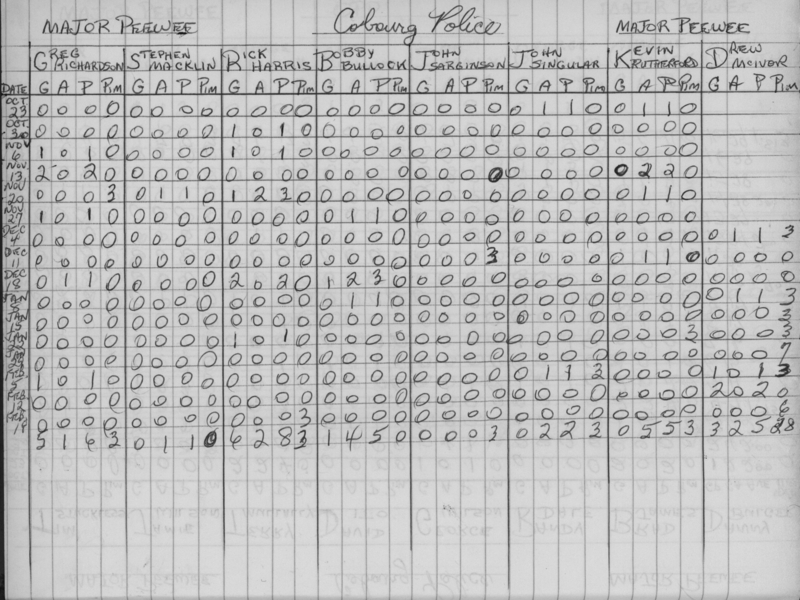 MAJOR PEEWEE Cobourg Police MAJOR PEEWEE
GREG RICHARDSON STEPHEN MACKLIN RICK HARRIS BOBBY BULLOCK JOHN SARGINSON JOHN SINGULAR KEVIN RUTHERFORD DREW McIVER
DATE G A P Pim G A P Pim G A P Pim G A P Pim G A P Pim G A P Pim G A P Pim G A P Pim
OCT 23 0 0 0 0 0 0 0 0 0 0 0 0 0 0 0 0 0 0 0 0 0 1 1 0 0 1 1 0
OCT 30 0 0 0 0 0 0 0 0 1 0 1 0 0 0 0 0 0 0 0 0 0 0 0 0 0 0 0 0
NOV 6 1 0 1 0 0 0 0 0 1 0 1 0 0 0 0 0 0 0 0 0 0 0 0 0 0 0 0 0
NOV 13 2 0 2 0 0 0 0 0 0 0 0 0 0 0 0 0 0 0 0 0 0 0 0 0 0 2 2 0
NOV 20 0 0 0 3 0 1 1 0 1 2 3 0 0 0 0 0 0 0 0 0 0 0 0 0 0 1 1 0
NOV 27 1 0 1 0 0 0 0 0 0 0 0 0 0 1 1 0 0 0 0 0 0 0 0 0 0 0 0 0
DEC 4 0 0 0 0 0 0 0 0 0 0 0 0 0 0 0 0 0 0 0 0 0 0 0 0 0 0 0 0 0 1 1 3
DEC 11 0 0 0 0 0 0 0 0 0 0 0 0 0 0 0 0 0 0 0 3 0 0 0 0 0 1 1 0 0 0 0 0
DEC 18 0 1 1 0 0 0 0 0 2 0 2 0 1 2 3 0 0 0 0 0 0 0 0 0 0 0 0 0 0 0 0 0
JAN 0 0 0 0 0 0 0 0 0 0 0 0 0 1 1 0 0 0 0 0 0 0 0 0 0 0 0 0 0 1 1 3
JAN 0 0 0 0 0 0 0 0 0 0 0 0 0 0 0 0 0 0 0 0 0 0 0 0 0 0 0 0 0 0 0 3
JAN 0 0 0 0 0 0 0 0 1 0 1 0 0 0 0 0 0 0 0 0 0 0 0 0 0 0 0 3 0 0 0 3
JAN 0 0 0 0 0 0 0 0 0 0 0 0 0 0 0 0 0 0 0 0 0 0 0 0 0 0 0 0 0 0 0 7
FEB 1 0 1 0 0 0 0 0 0 0 0 0 0 0 0 0 0 0 0 0 0 1 1 3 0 0 0 0 1 0 1 3
FEB 0 0 0 0 0 0 0 0 0 0 0 0 0 0 0 0 0 0 0 0 0 0 0 0 0 0 0 0 2 0 2 0
FEB 19 0 0 0 0 0 0 0 0 0 0 0 3 0 0 0 0 0 0 0 0 0 0 0 0 0 0 0 0 0 0 0 6
5 1 6 3 0 1 1 0 6 2 8 3 1 4 5 0 0 0 0 3 0 2 2 3 0 5 5 3 3 2 5 28